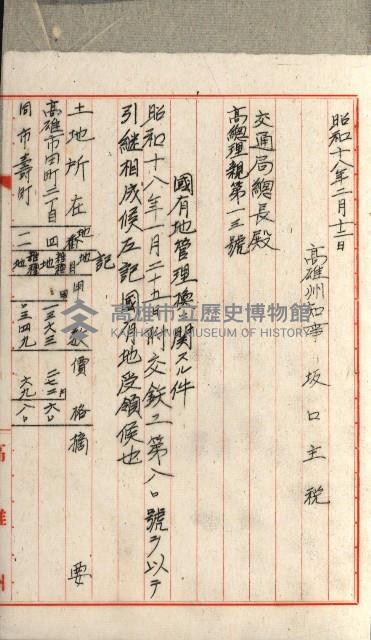 昭和十八年二月十二日
高雄州知事 坂口主税
交通局總長殿
高總理親第一三號
國有地管理換ニ關スル件
昭和十八年一月二十五日附交鉄工第八〇號ヲ以テ
引継相成候左記國有地受領候也
記
土地所在 地番 地目 甲數 價格 摘要
高雄市田町二百 四
同市壽町 二
高雄市立歷史博物館
KAOHSIUNG MUSEUM OF HISTORY
高雄州